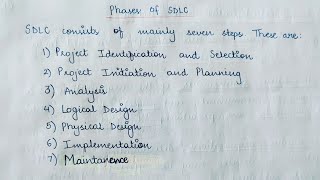 Phases Of SDLC
SDLC consists of mainly seven steps. These are:
1) Project Identification and Selection
2) Project Initiation and Planning
3) Analysis
4) Logical Design
5) Physical Design
6) Implementation
7) Maintanence